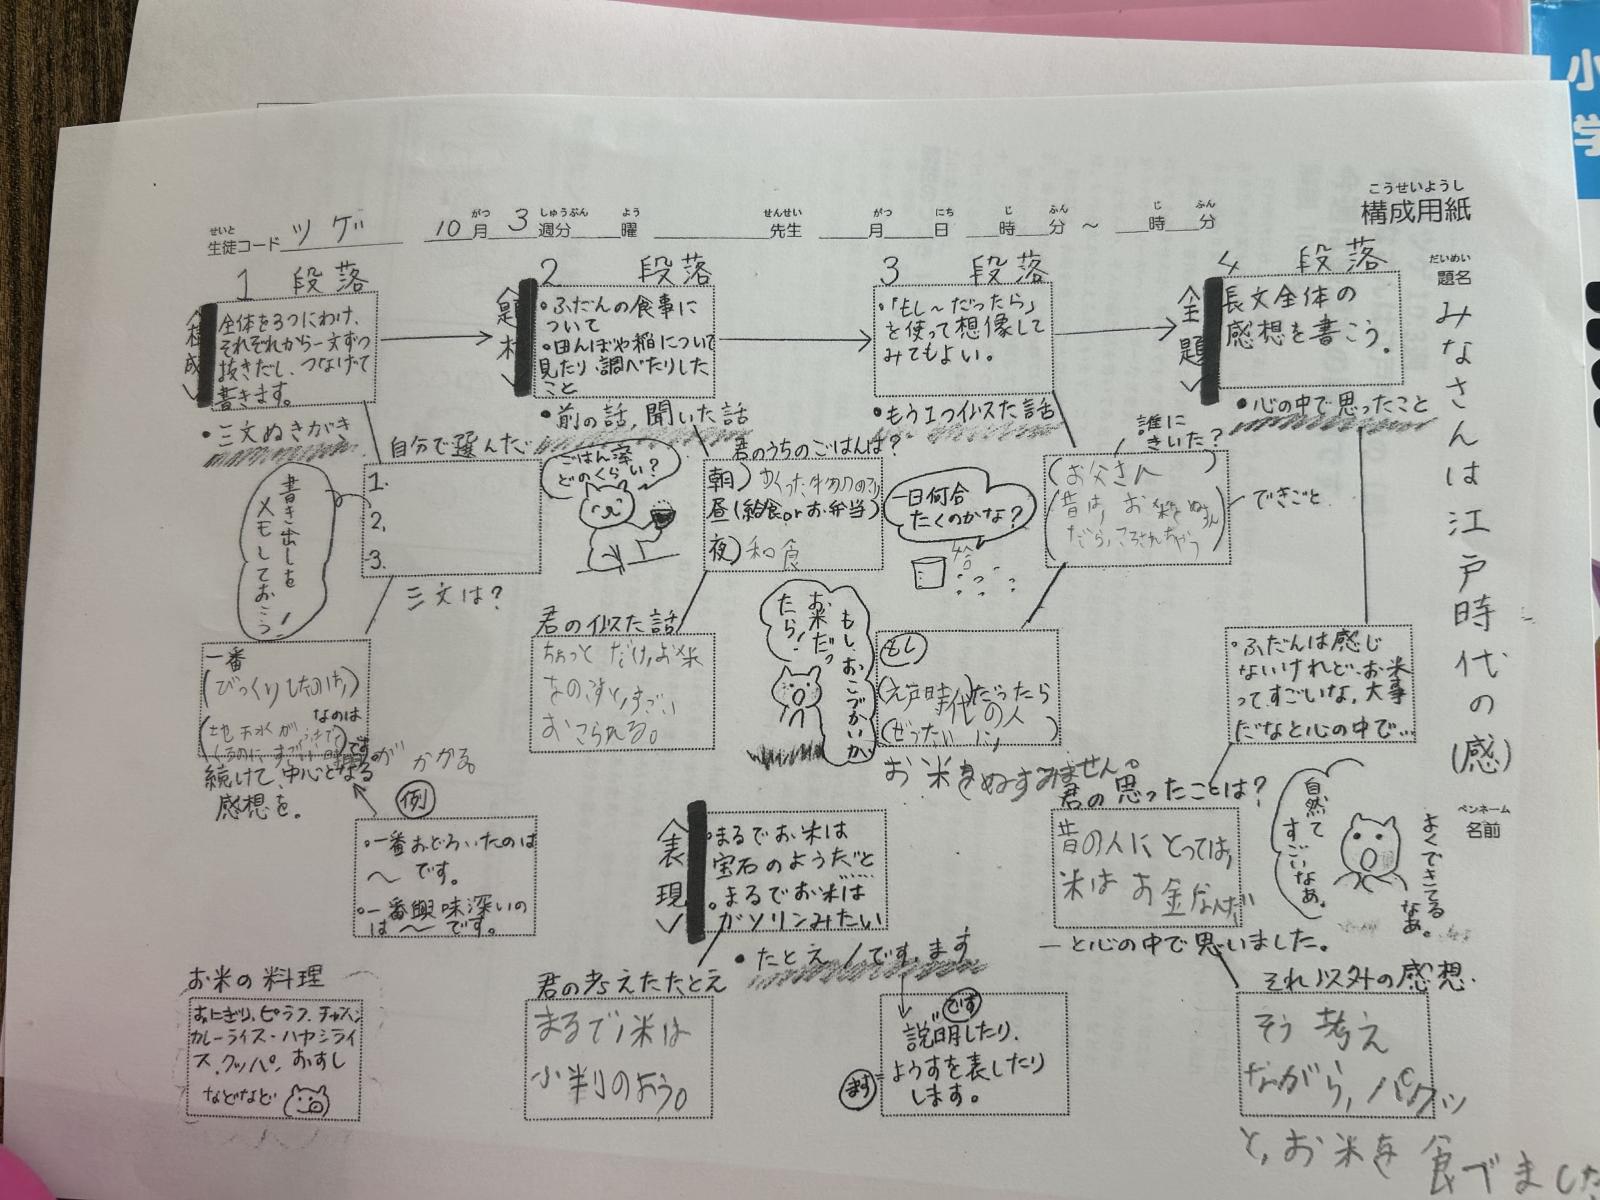 構成用紙
こうせいようし
生徒コード ツゲ 10月3週分 曜 先生 月 日 時 分 ～ 時 分
せいと がつ しゅうぶん よう せんせい がつ にち じ ふん じ ふん
題名
だいめい
みなさんは江戸時代の(感)
ペンネーム
名前
1 段落
〈構成〉
全体を3つにわけ、
それぞれから一文ずつ
抜きだし、つなげて
書きます。
・三文ぬきがき
自分で選んだ
1.
2.
3.
三文は?
書き出しを
メモしておこう!
一番
(びっくりしたのは、)
なのは
です
かかる。
続けて、中心となる
感想を。
例
・一番おどろいたのは
～です。
・一番興味深いの
は～です。
お米の料理
おにぎり、ピラフ、チャーハン
カレーライス・ハヤシライ
ス、クッパ、おすし
などなど
2 段落
〈題材〉
・ふだんの食事に
ついて
・田んぼや稲について
見たり、調べたりした
こと
・前の話,聞いた話
ごはん、
どのくらい?
君のうちのごはんは?
朝)
昼(給食orお弁当)
夜)和食
君の似た話
ちょっとだけ、お米
をのこすと、すごい
おこられる。
もし、おこづかいが
お米だっ
たら!
〈表現〉
・まるでお米は
宝石のようだと
・まるでお米は
ガソリンみたい
・たとえ/です、ます
君の考えたたとえ
まるで、米は
小判のよう。
です
説明したり、
ます
ようすを表したり
します。
3 段落
・「もし～だったら」
を使って想像して
みてもよい。
・もう1つ似た話
一日何合
たくのかな?
誰に
きいた?
(お父さん)
(昔は、お米をぬすん
だら、ころされちゃう)
できごと
もし
(江戸時代の人)だったら
(ぜったい)
お米をぬすみません。
4 段落
〈全題〉
長文全体の
感想を書こう。
・心の中で思ったこと
・ふだんは感じ
ないけれど、お米
ってすごいな,大事
だなと心の中で…
君の思ったことは?
昔の人にとっては、
米はお金なんだ
―と心の中で思いました。
自然て
すごいなぁ。
よくできてる
なぁ。
それ以外の感想.
そう考え
ながら、パクッ
と、お米を食べました
小
学